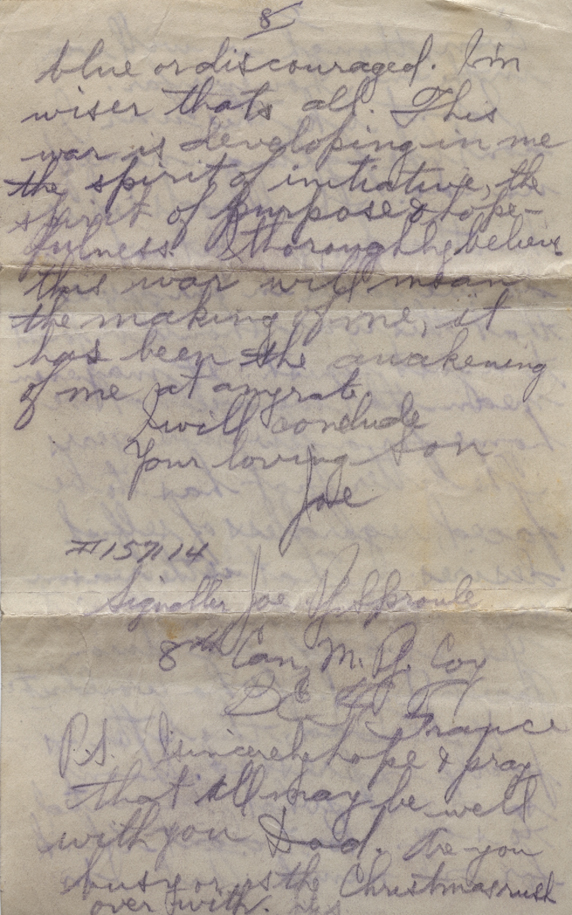 8
blue or discouraged. I'm
wiser thats all. This
war is developing in me
the spirit of initiative, the
spirit of purpose & hope-
fulness. I thoroughly believe
this war will mean
the making of me, it
has been the awakening
of me at anyrate
I will conclude
Your loving Son
Joe
#157114
Signaller Joe Sproule
8th Can. M. G. Coy
B E F
France
P.S. I sincerely hope & pray
that all may be well
with you Dad. Are you
busy or is the Christmas rush
over with.